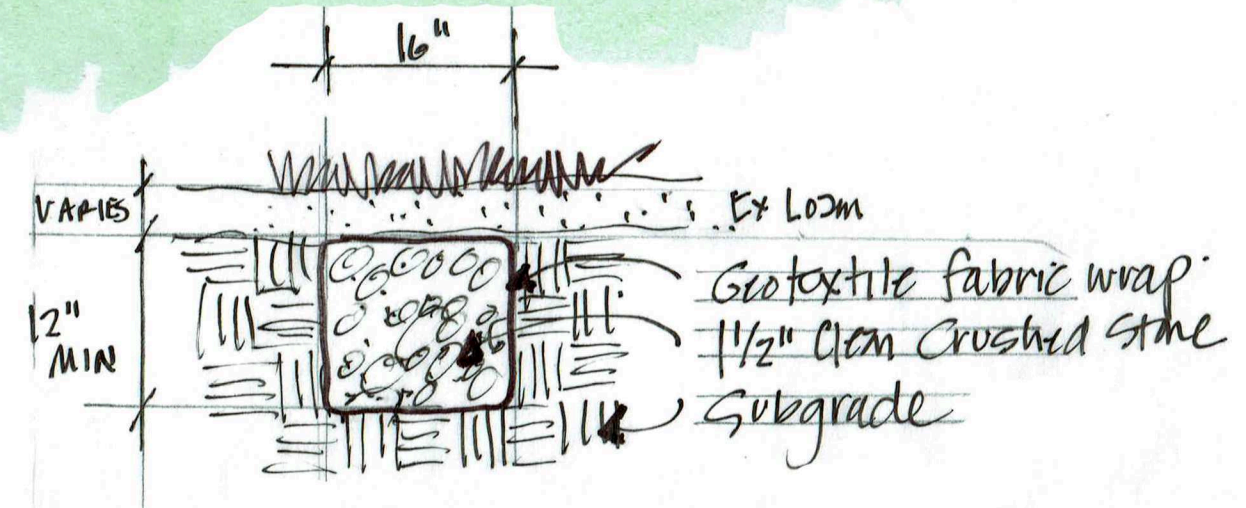 16"
VARIES
Ex Loam
12"
MIN
Geotextile fabric wrap
1 1/2" Clean Crushed Stone
Subgrade